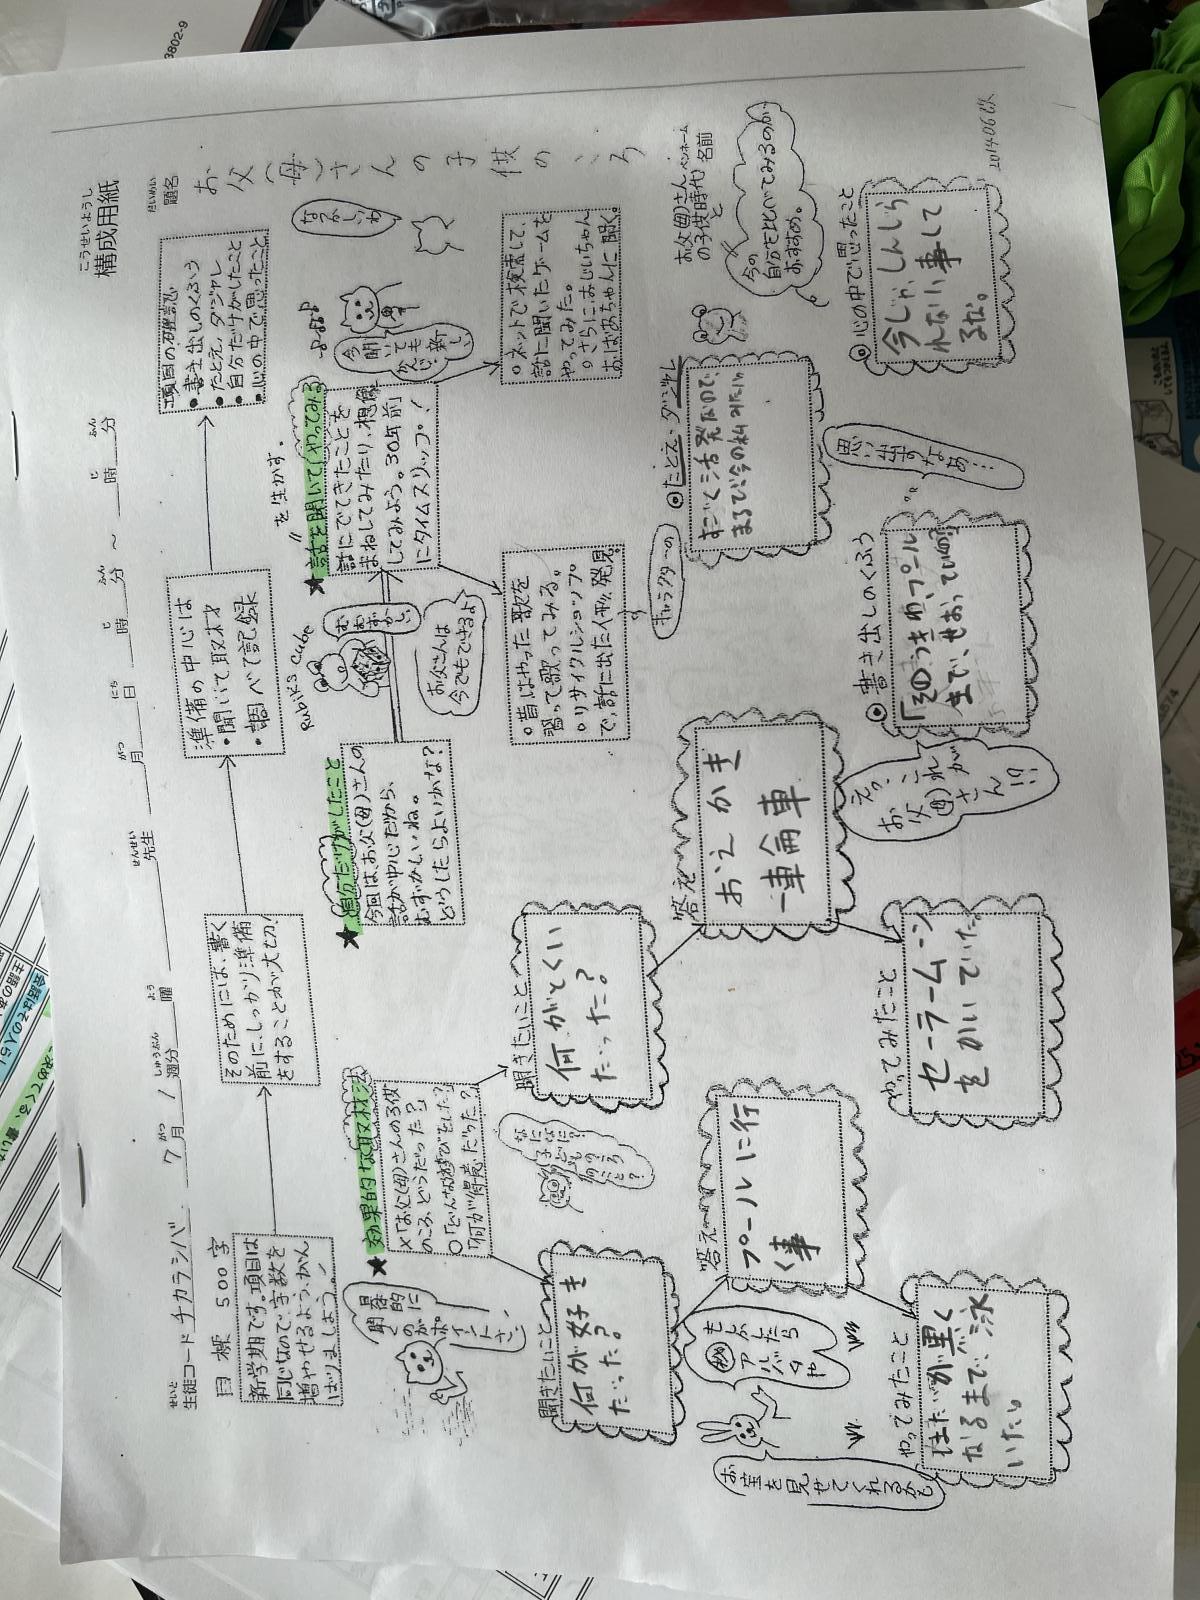 こうせいようし
構成用紙
だいめい
題名
お父(母)さんの子供のころ
せいと
生徒コード チカラシバ 7月 / 週分 曜 先生 月 日 時 分 ～ 時 分
がつ しゅうぶん よう せんせい がつ にち じ ふん じ ふん
目標 500字
新学期です。項目は
同じなので、字数を
増やせるよう、がん
ばりましょう。
そのためには、書く
前に、しっかり準備
をすることが大切!
準備の中心は
・聞いて取材
・調べて記録
項目の確認
・書き出しのくふう
・たとえ、ダジャレ
・自分だけがしたこと
・心の中で思ったこと
を生かす。
★効果的な取材法
×「お父(母)さんの子供
のころ、どうだった?」
○「どんな遊びをした?」
「何が得意だった?」
具体的に
聞くのが
ポイントさ。
なになに?
子どもの
ころ
★自分だけがしたこと
今回は、お父(母)さんの
話が中心だから、
むずかしいね。
どうしたらよいかな?
Rubik's Cube
むずかしい
お父さんは
今でもできるよ
★話を聞いて「やってみる」
話にでてきたことを
まねしてみたり、想像
してみよう。30年前
にタイムスリップ!
今聞
いても
新し
なつかしいわ
○昔はやった歌を
習って歌ってみる。
○リサイクルショップ
で、話に出た「物」発見。
キャラクターの
○ネットで検索して、
話に聞いたゲームを
やってみた。
○さらに、おじいちゃん
おばあちゃんに聞く。
聞きたいこと
何が好き
だった?
聞きたいこと
何がとくい
だった?
答え
プールに行
く事
答え
おえかき
一車倫車
㊙
もしかしたら
アルバムや
お宝を見せてくれるかも
やってみたこと
はだが黒く
なるまで、泳
いだ。
やってみたこと
セーラームーン
をかいていた。
えっ、これが
お父(母)さん!?
◎書き出しのくふう
思い出すなあ…
◎たとえ・ダジャレ
すごく活発なので、
まるで今の私みたい
お父(母)さん ペンネーム
の子供時代) と 名前
今の
自分と比べてみるのが
おすすめ。
◎心の中で思ったこと
今じゃ、しんじら
れない事して
るな。
2014.06改
3802-9